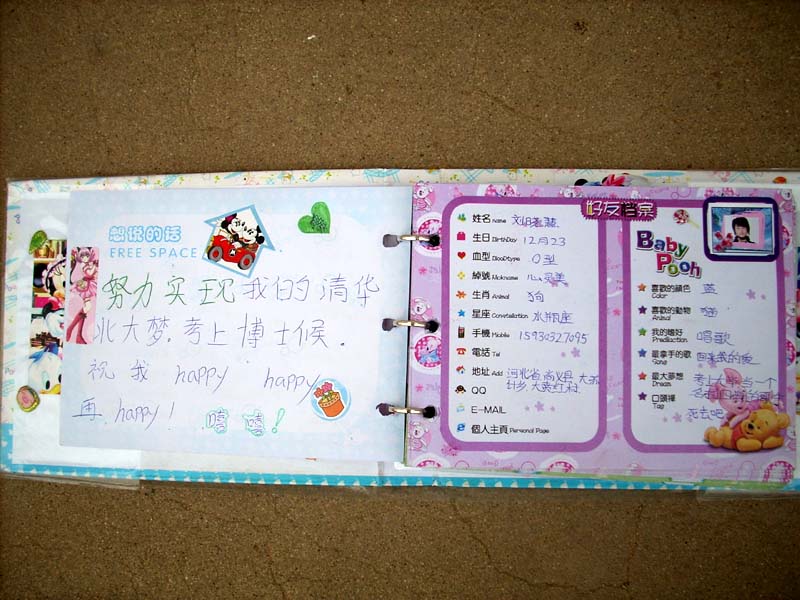 想说的话
FREE SPACE
努力实现我的清华
北大梦.考上博士候.
祝我 happy happy
再 happy!
嘻嘻!
好友档案
姓名 Name
生日 BirthDay 12月23
血型 BlooDtype O型
綽號 Nickname
生肖 Animal 狗
星座 Constellation 水瓶座
手機 Mobile 15930327095
電話 Tel
地址 Add 河北省尚义县大苏
QQ
E-MAIL
個人主頁 Personal Page
Baby
Pooh
喜歡的顏色 蓝
Color
喜歡的動物 猫
Animal
我的嗜好 唱歌
Predilection
最拿手的歌
Song
最大夢想 考上大学当一个
Dream
口頭禪
Tag
死去吧